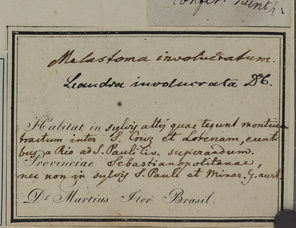 Confer. hunc
Melastoma involucratum.
Leandra involucrata DC.
Habitat in sylvis altis quae tegunt montium
tractum inter S. Cruz et Lorenam, eunti
bus a Rio ad S. Pauli superandum
Provinciae Sebastianopolitanae,
nec non in sylvis S. Pauli et Minar. G.
Dr. Martius Iter Brasil.